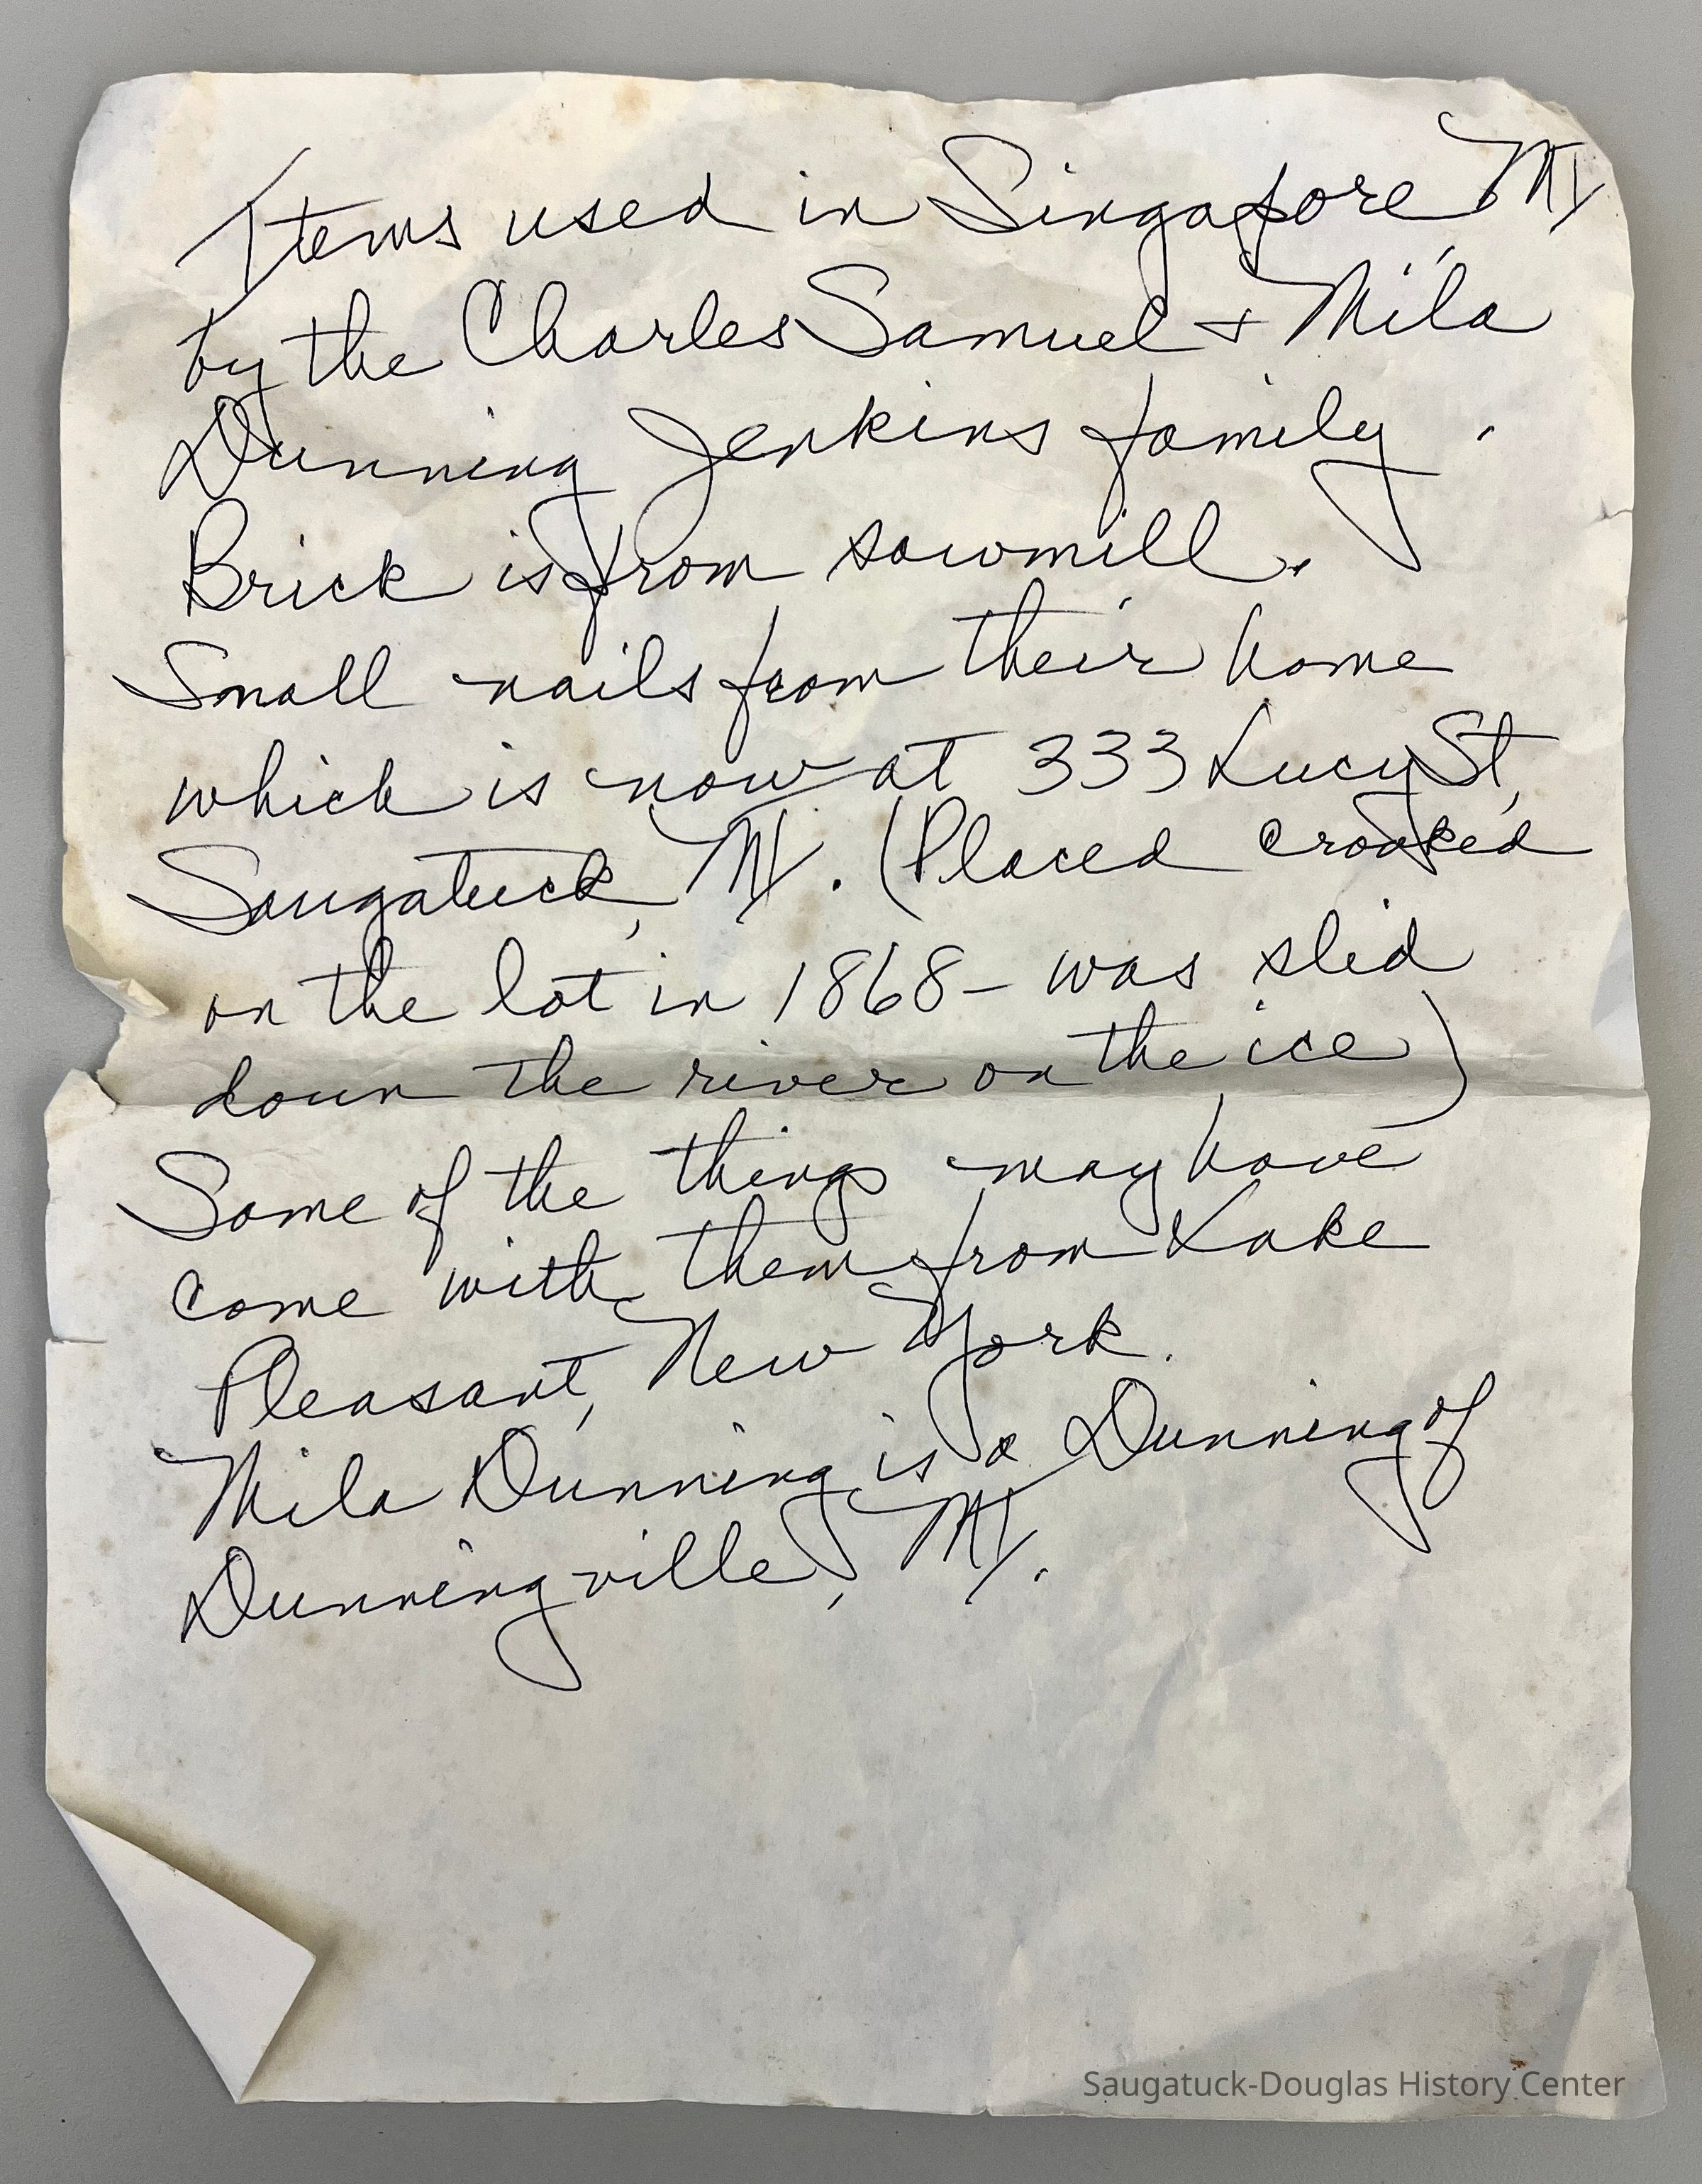 Items used in Singapore MI
by the Charles Samuel + Mila
Dunning Jenkins family.
Brick is from sawmill.
Small nails from their home
which is now at 333 Lucy St,
Saugatuck, MI. (Placed crooked
on the lot in 1868 - was slid
down the river on the ice)
Some of the things may have
come with them from Lake
Pleasant, New York.
Mila Dunning is a Dunning of
Dunningville, MI.
Saugatuck-Douglas History Center